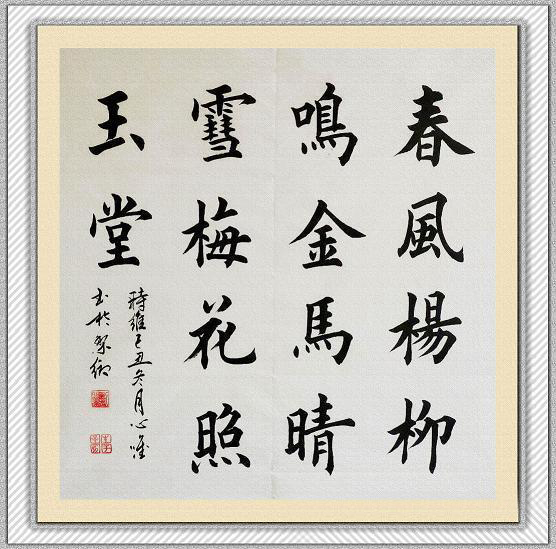 春風楊柳
鳴金馬晴
雪梅花照
玉堂
時維己丑冬月心唯
書於梁鄉